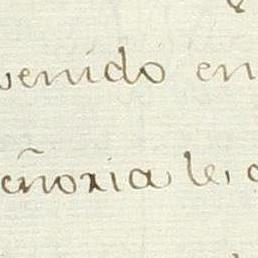 venido en
eñoria le,